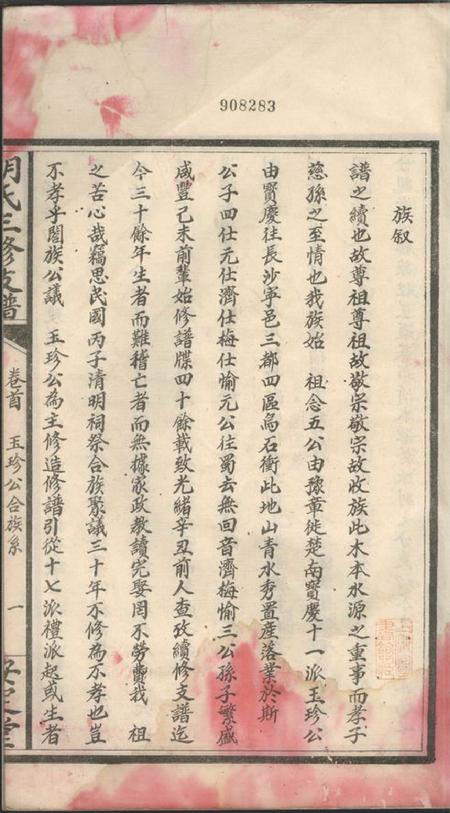 908283
族叙
譜之續也故尊祖尊祖故敬宗敬宗故收族此木本水源之重事而孝子
慈孫之至情也我族始 祖念五公由豫章徙楚南寶慶十一派玉珍公
由寶慶往長沙寧邑三都四區烏石衝此地山青水秀置産落業於斯
公子四仕元仕濟仕梅仕愉元公往蜀去無回音濟梅愉三公孫子繁盛
咸豐己未前輩始修譜牒四十餘載致光緒辛丑前人查攷續修支譜迄
今三十餘年生者而難稽亡者而無據家政教讀完娶罔不勞費我 祖
之苦心哉竊思民國丙子清明祠祭合族聚議三十年不修為不孝也豈
不孝乎闔族公議 玉珍公為主修造修譜引從十七派禮派起或生者
氏三修支譜
卷首 玉珍公合族系 一